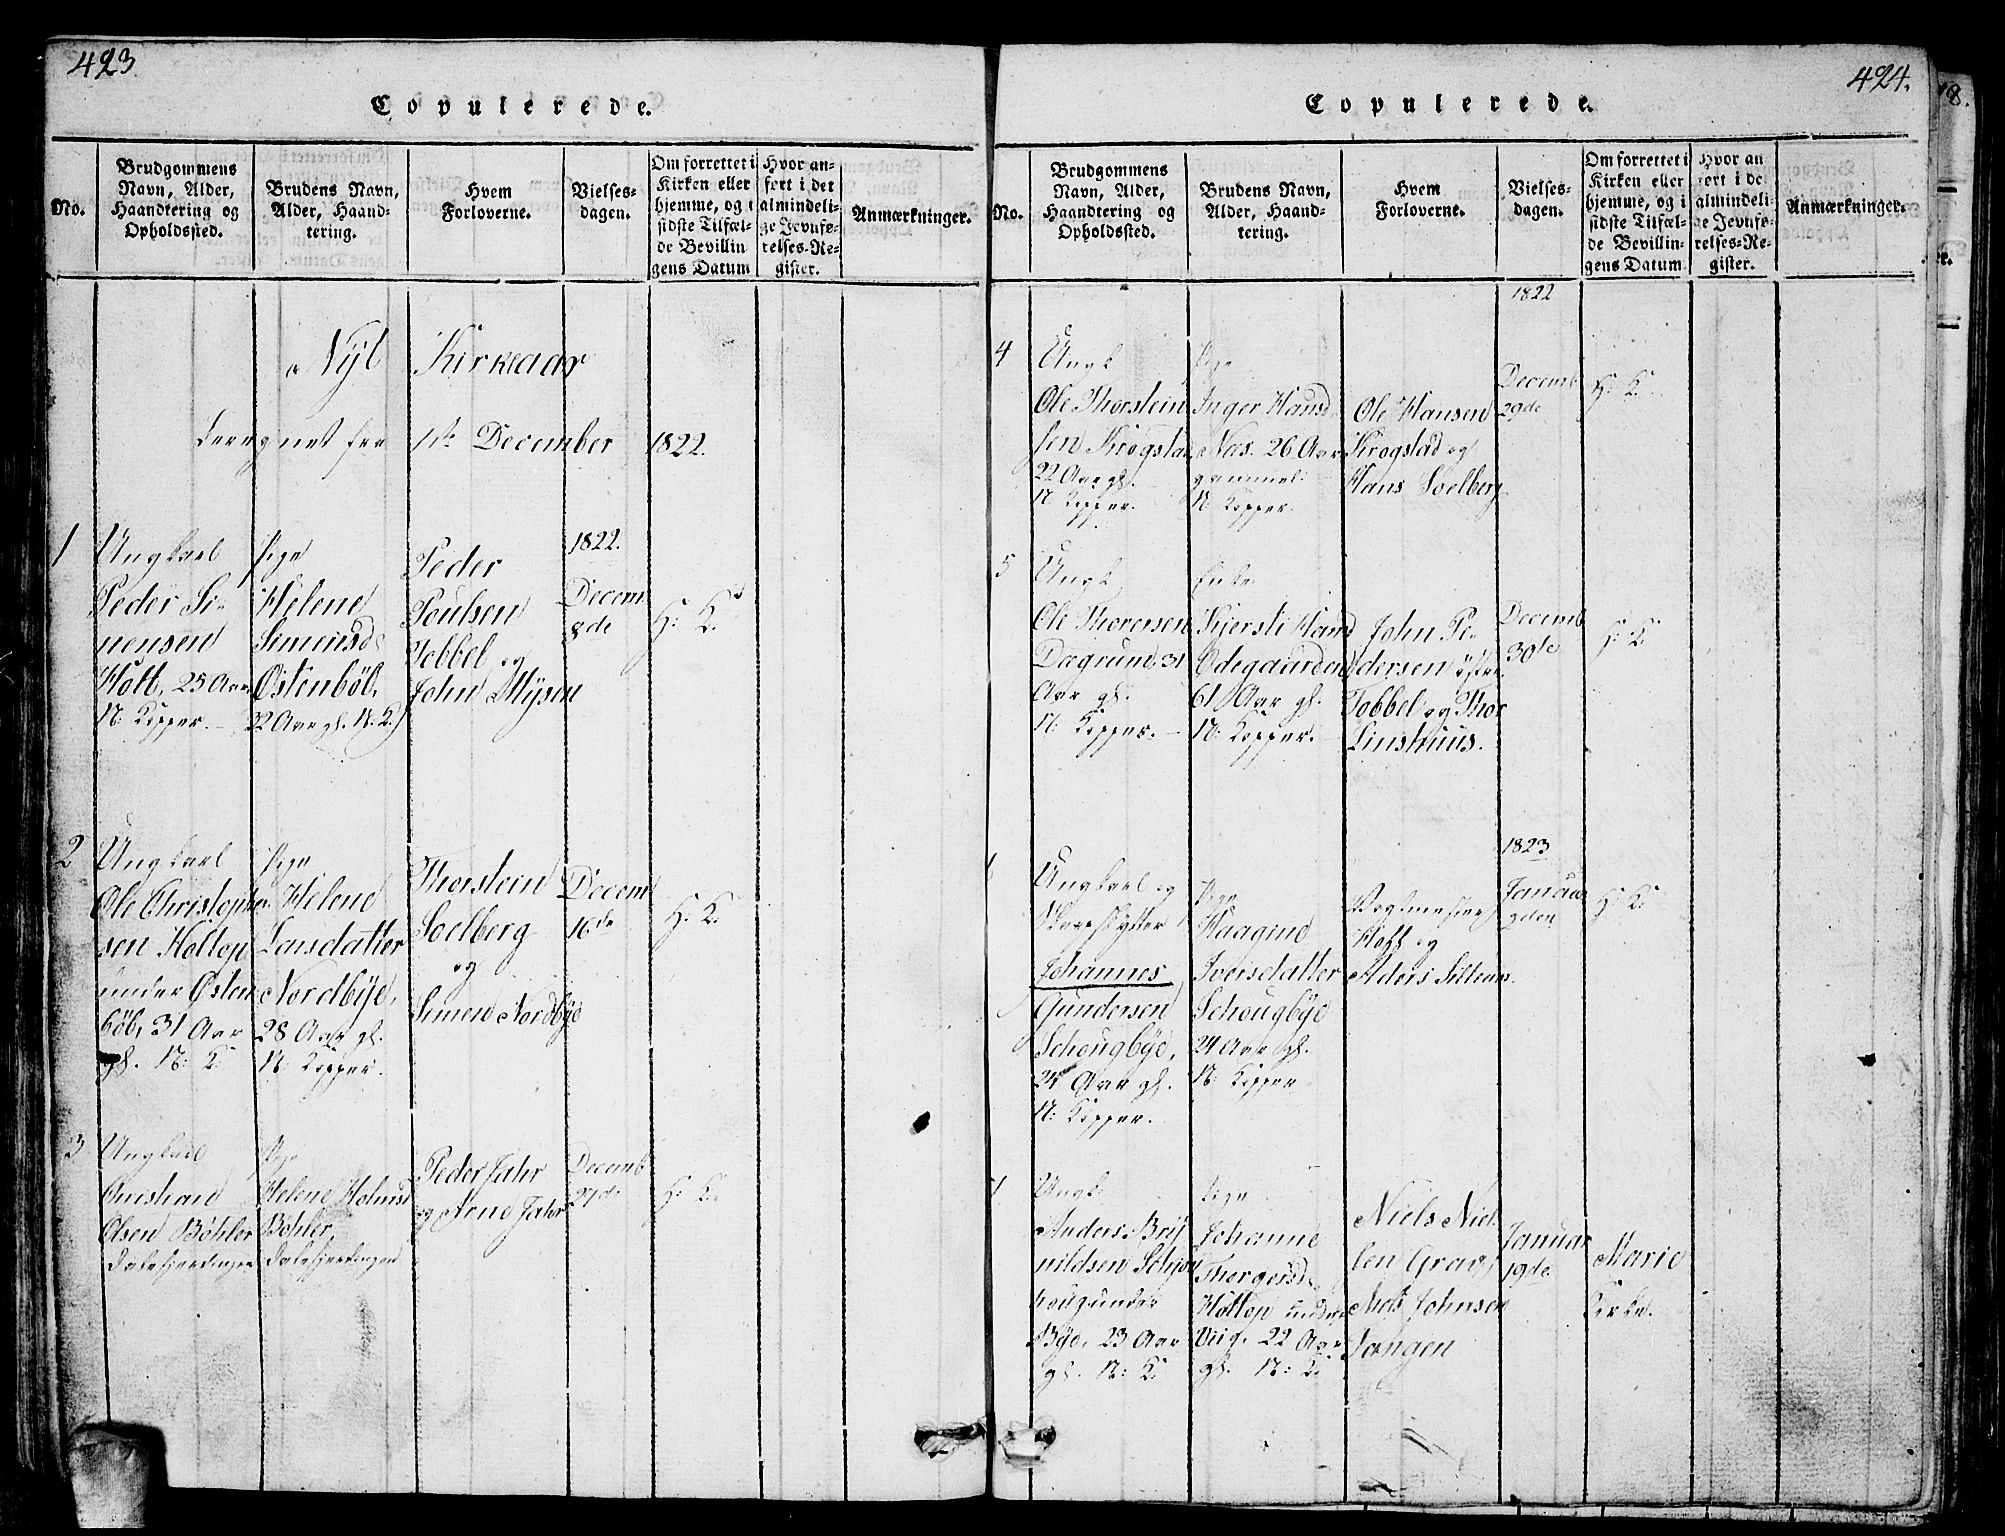 423.
Copulerede.
No.
Brudgommens
Navn, Alder,
Haandtering og
Opholdssted.
Brudens Navn,
Alder, Haand-
tering.
Hvem
Forloverne.
Vielses-
dagen.
Om forrettet i
Kirken eller
hjemme, og i
sidste Tilfæl-
de Bevillin
gens Datum
Hvor an-
ført i det
almindeli-
ge Jevnfø-
relses-Re-
gister.
Anmærkninger.
Nyt Kirkeaar
beregnet fra 1ste December 1822.
1
Ungkarl
Peder Si-
mensen
Hoff, 25 Aar
N: Kopper.
Pige
Helene
Simensd:
Østenbøl,
22 Aar gl. N: K.
Peder
Poulsen
Tobbel og
John Mysen
1822.
Decem
8de
H: K:
2
Ungkarl
Ole Christopher
sen Holtop
under Østen
bøl, 31 Aar
gl. N: K:
Pige
Helene
Larsdatter
Nordbye,
28 Aar gl.
N: Kopper.
Thorstein
Solberg
og
Simen Nordbye
Decem
16de
H: K:
3
Ungkarl
Olsen Bøhler
Dalefjerdingen
Pige
Helene Holmsd
Bøhler,
Dalefjerdingen
Peder Jahr
og Arne Jahr
Decemb
27de
H: K:
424.
Copulerede.
No.
Brudgommens
Navn, Alder,
Haandtering og
Opholdssted.
Brudens Navn,
Alder, Haand-
tering.
Hvem
Forloverne.
Vielses-
dagen.
Om forrettet i
Kirken eller
hjemme, og i
sidste Tilfæl-
de Bevillin-
gens Datum
Hvor an
ført i de
almindeli-
ge Jevnfø-
relses-Re-
gister.
Anmærkninger.
1822
4
Ungk
Ole Thorstein
sen Krogstad
22 Aar gl.
N: Kopper.
Pige
Inger Hansd
Næs. 26 Aar
gammel.
N: Kopper.
Ole Hansen
Krogstad og
Hans Solberg
Decemb
29de
H: K:
5
Ungk
Ole Thoresen
Dægrund, 31
Aar gl.
N: Kopper.
Enke
Kjersti Hans
Ødegaarden
61 Aar gl.
N: Kopper.
John Pe-
dersen østre
Tobbel og Thor
Linshuus.
Decemb
30te
H: K:
1823
Ungkarl og
Skarpskytter
Johannes
Gundersen
Schougbye,
24 Aar gl.
N: Kopper.
Pige
Haagine
Iversdatter
Schougbye
24 Aar gl.
N: Kopper
Vagtmester
Hoff og
Januar
9den
H: K:
Ungk.
Anders Bry
nildsen
under
Bye, 23 Aar
gl. N: K:
Pige
Johanne
Thorgersd
Holtop under
22 Aar
gl. N: K:
Niels Niel
sen Grav,
Niels Johnsen
Tangen
Januar
19de
Marie
Kirke.